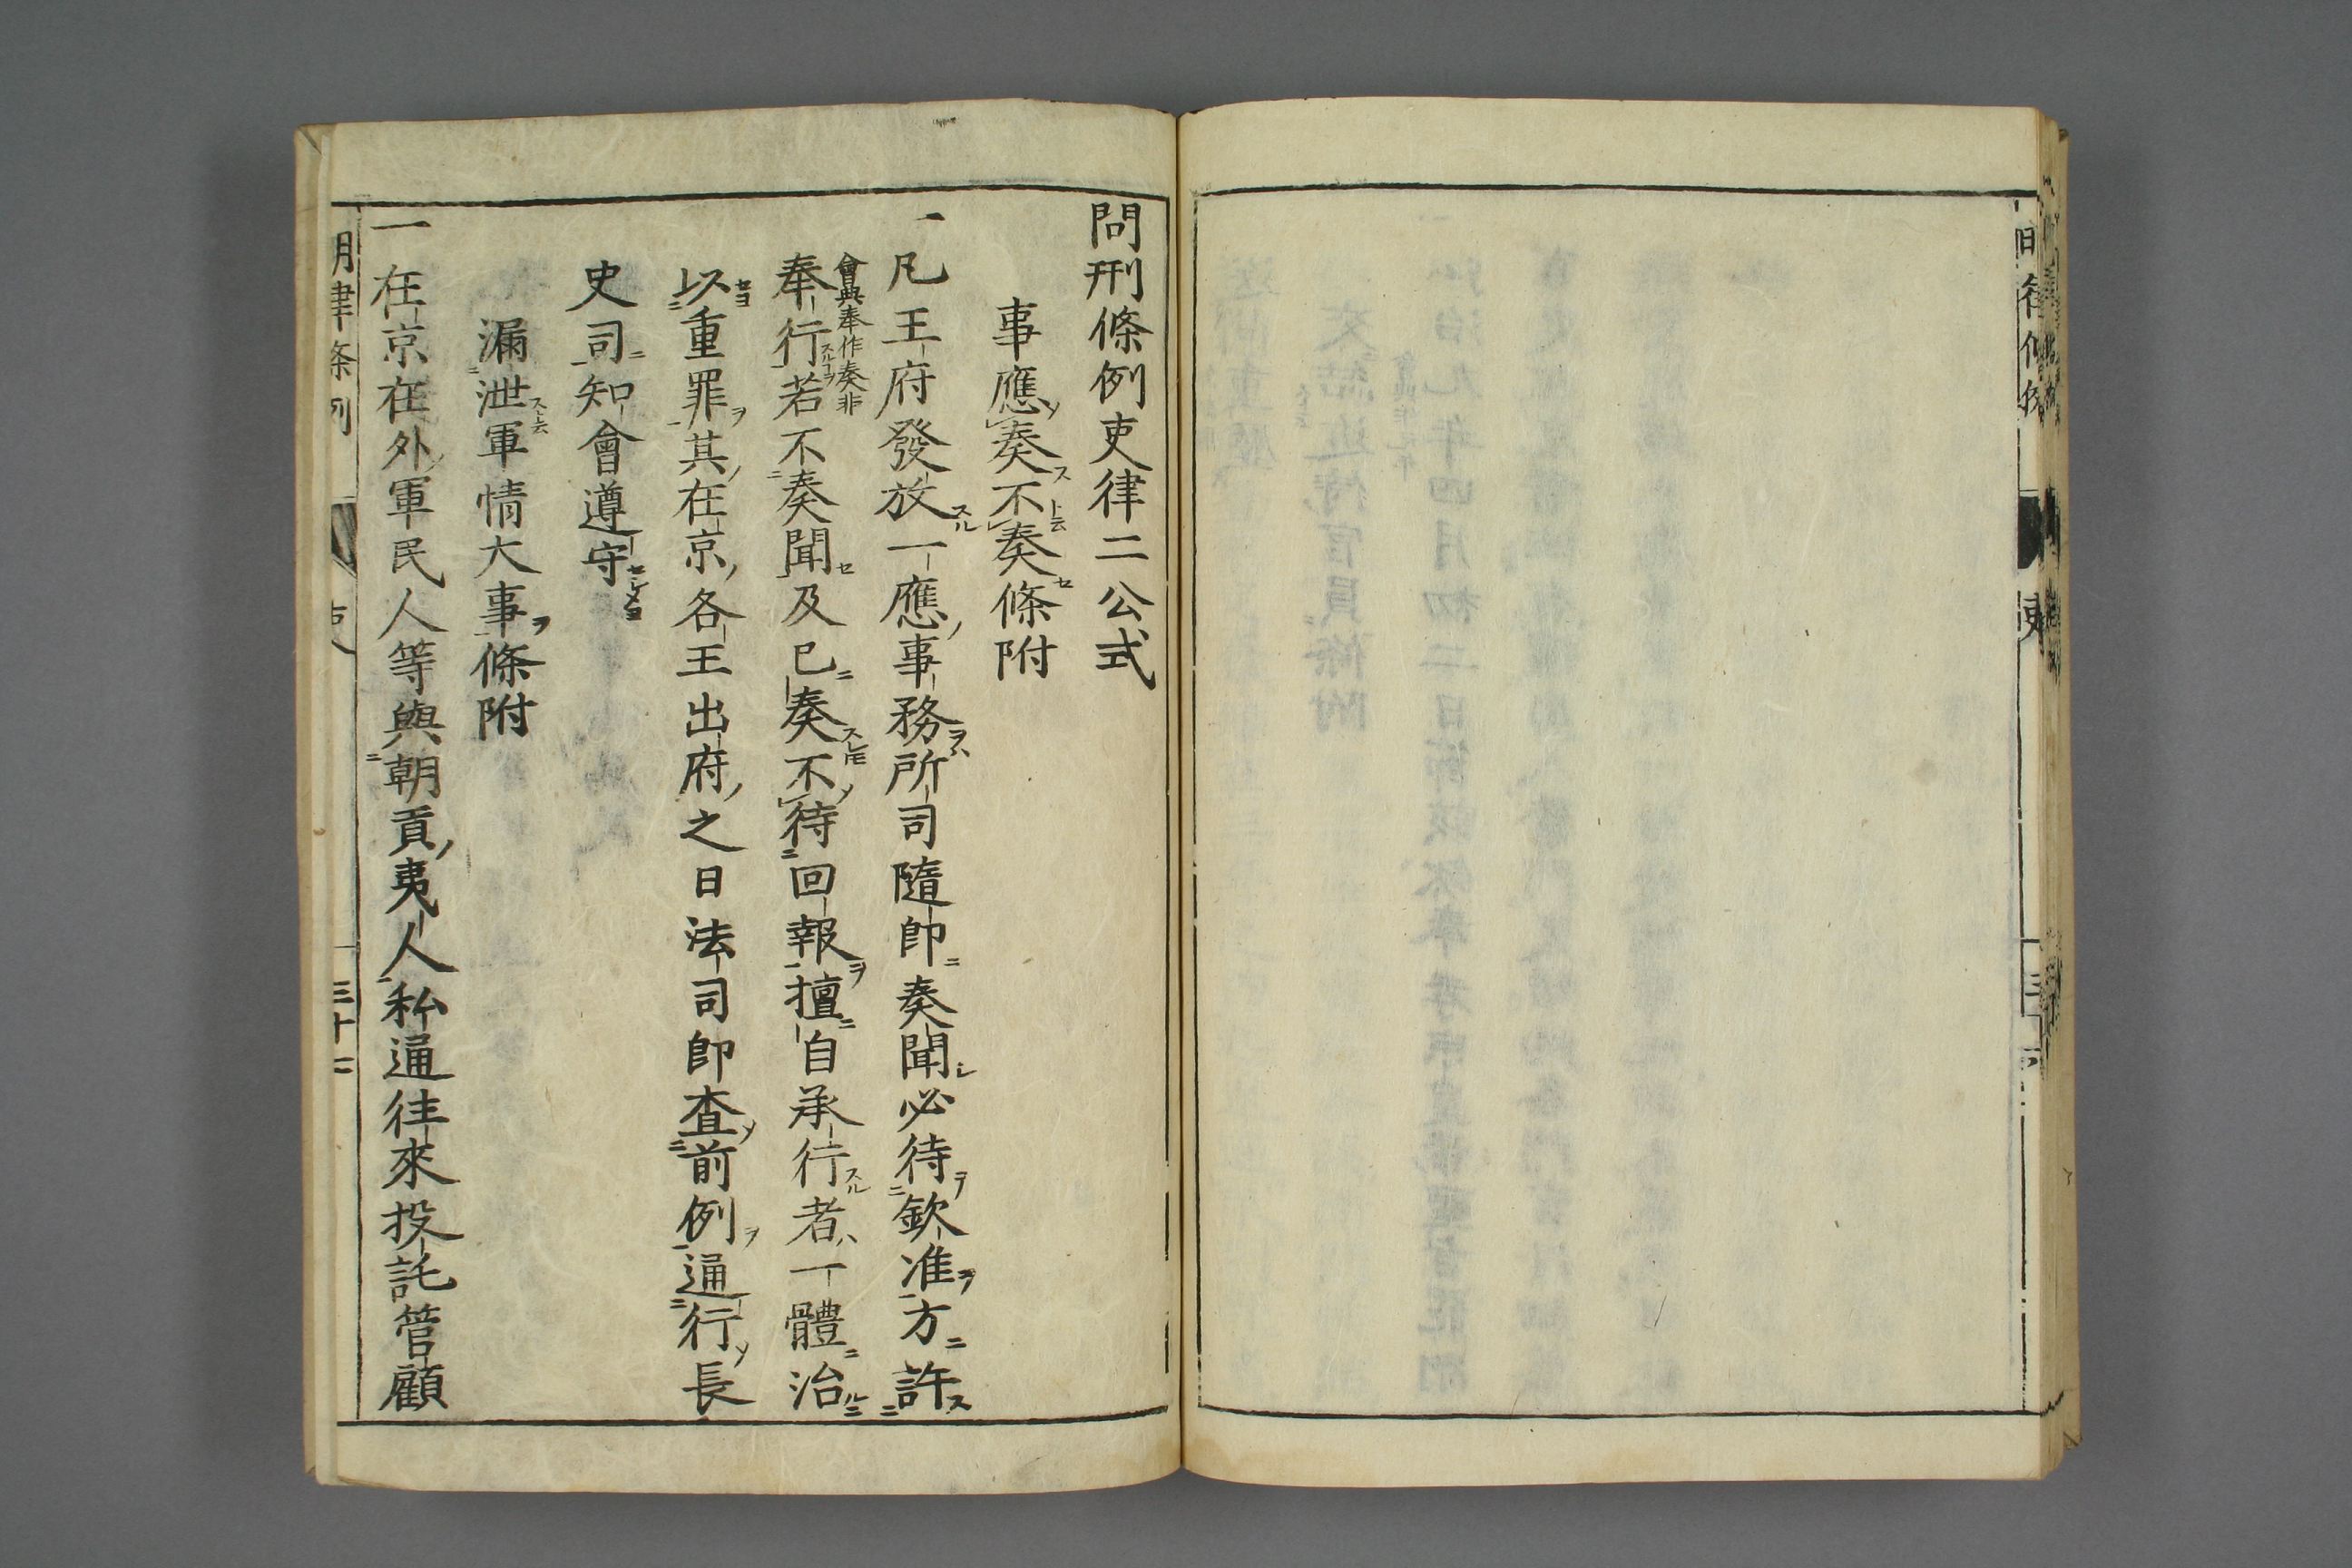 問刑條例吏律二公式
事應奏不奏條附
一凡王府發放一應事務所司隨即奏聞必待欽准方許
會典奉作奏非
奉行若不奏聞及已奏不待回報擅自承行者一體治
以重罪其在京各王出府之日法司即查前例通行長
史司知會遵守
漏泄軍情大事條附
一在京在外軍民人等與朝貢夷人私通往來投託管顧
明律條例
吏
三十二